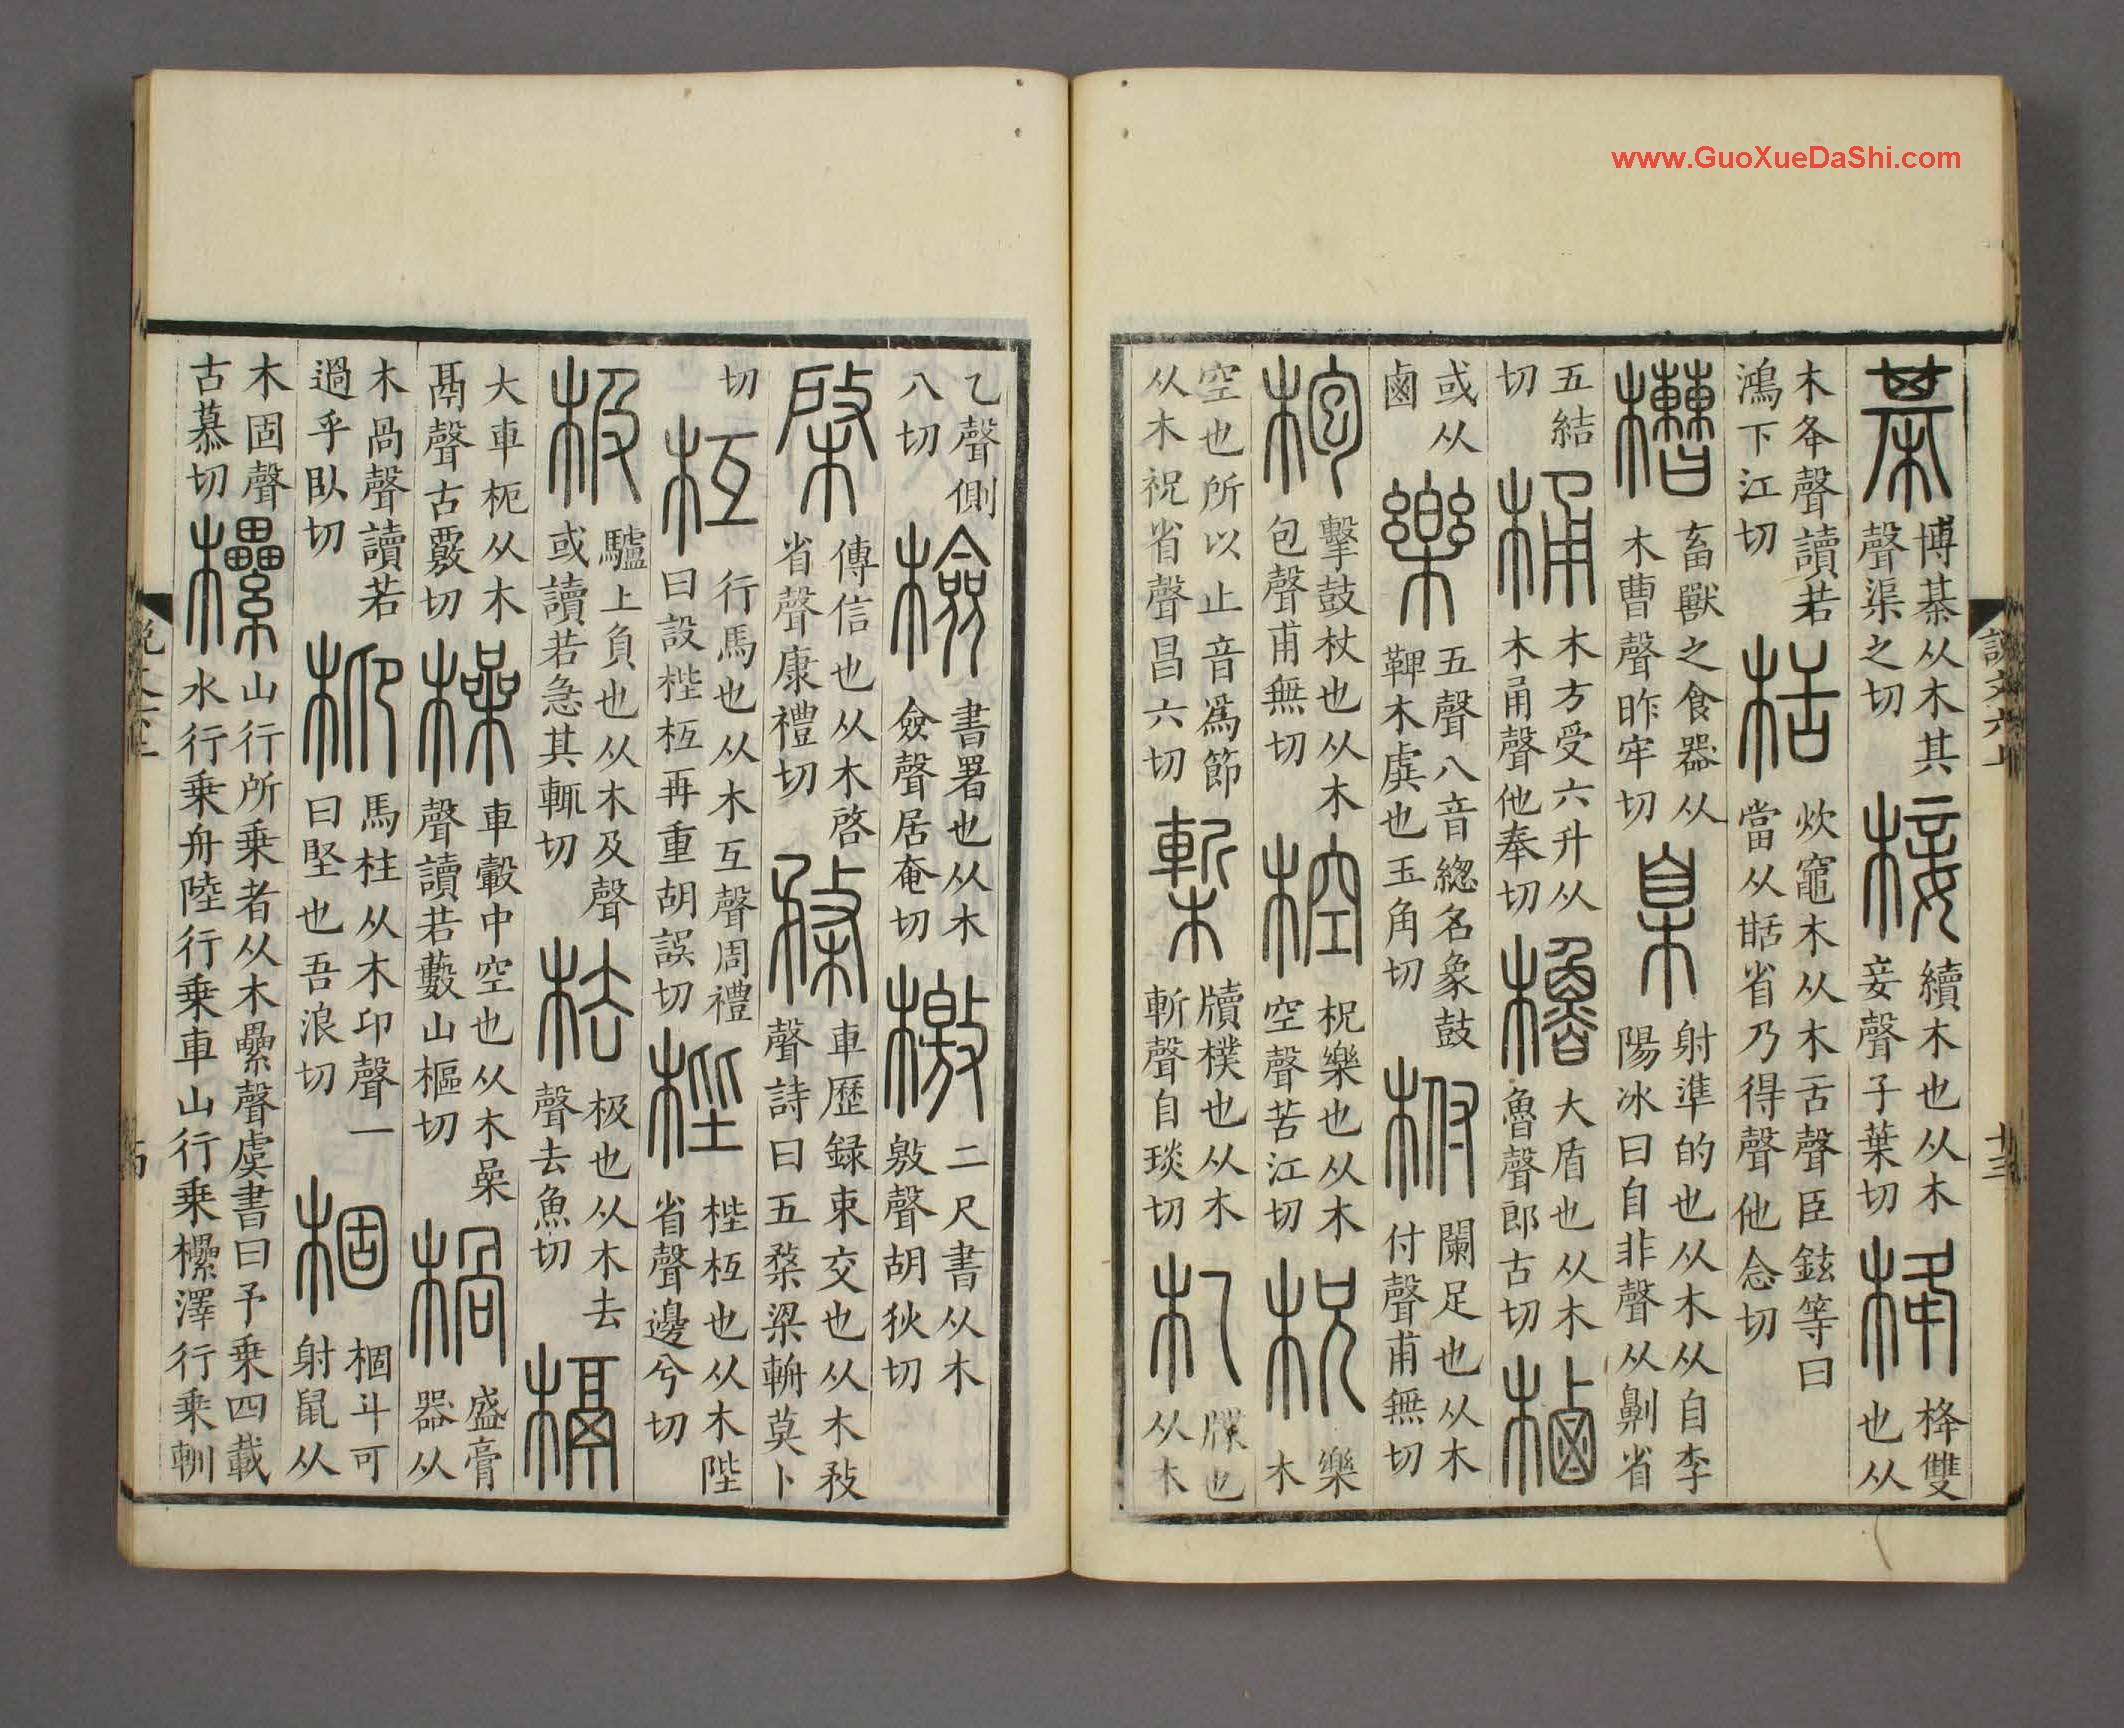 www.GuoXueDaShi.com
説文六上
十三
棊博棊从木其聲渠之切椄續木也从木妾聲子葉切栙栙雙也从
木夅聲讀若鴻下江切栝炊竈木从木舌聲臣鉉等曰當从甛省乃得聲他念切
槽畜獸之食器从木曹聲昨牢切臬射準的也从木从自李陽冰曰自非聲从劓省
五結切桶木方受六升从木甬聲他奉切櫓大盾也从木魯聲郎古切樐
或从鹵樂五聲八音緫名象鼓鞞木虡也玉角切柎闌足也从木付聲甫無切
枹擊鼓杖也从木包聲甫無切椌柷樂也从木空聲苦江切柷樂木
空也所以止音爲節从木祝省聲昌六切槧牘樸也从木斬聲自琰切札牒也从木
乙聲側八切檢書署也从木僉聲居奄切檄二尺書从木敫聲胡狄切
棨傳信也从木啓省聲康禮切楘車歴録束交也从木敄聲詩曰五楘梁輈莫卜
切枑行馬也从木互聲周禮曰設梐枑再重胡誤切梐梐枑也从木陛省聲邊兮切
极驢上負也从木及聲或讀若急其輒切㭕极也从木去聲去魚切槅
大車枙从木鬲聲古覈切橾車轂中空也从木喿聲讀若藪山樞切楇盛膏器从
木咼聲讀若過乎臥切枊馬柱从木卬聲一曰堅也吾浪切棝棝斗可射鼠从
木固聲古慕切欙山行所乗者从木纍聲虞書曰予乗四載水行乗舟陸行乗車山行乗欙澤行乗
説文六上